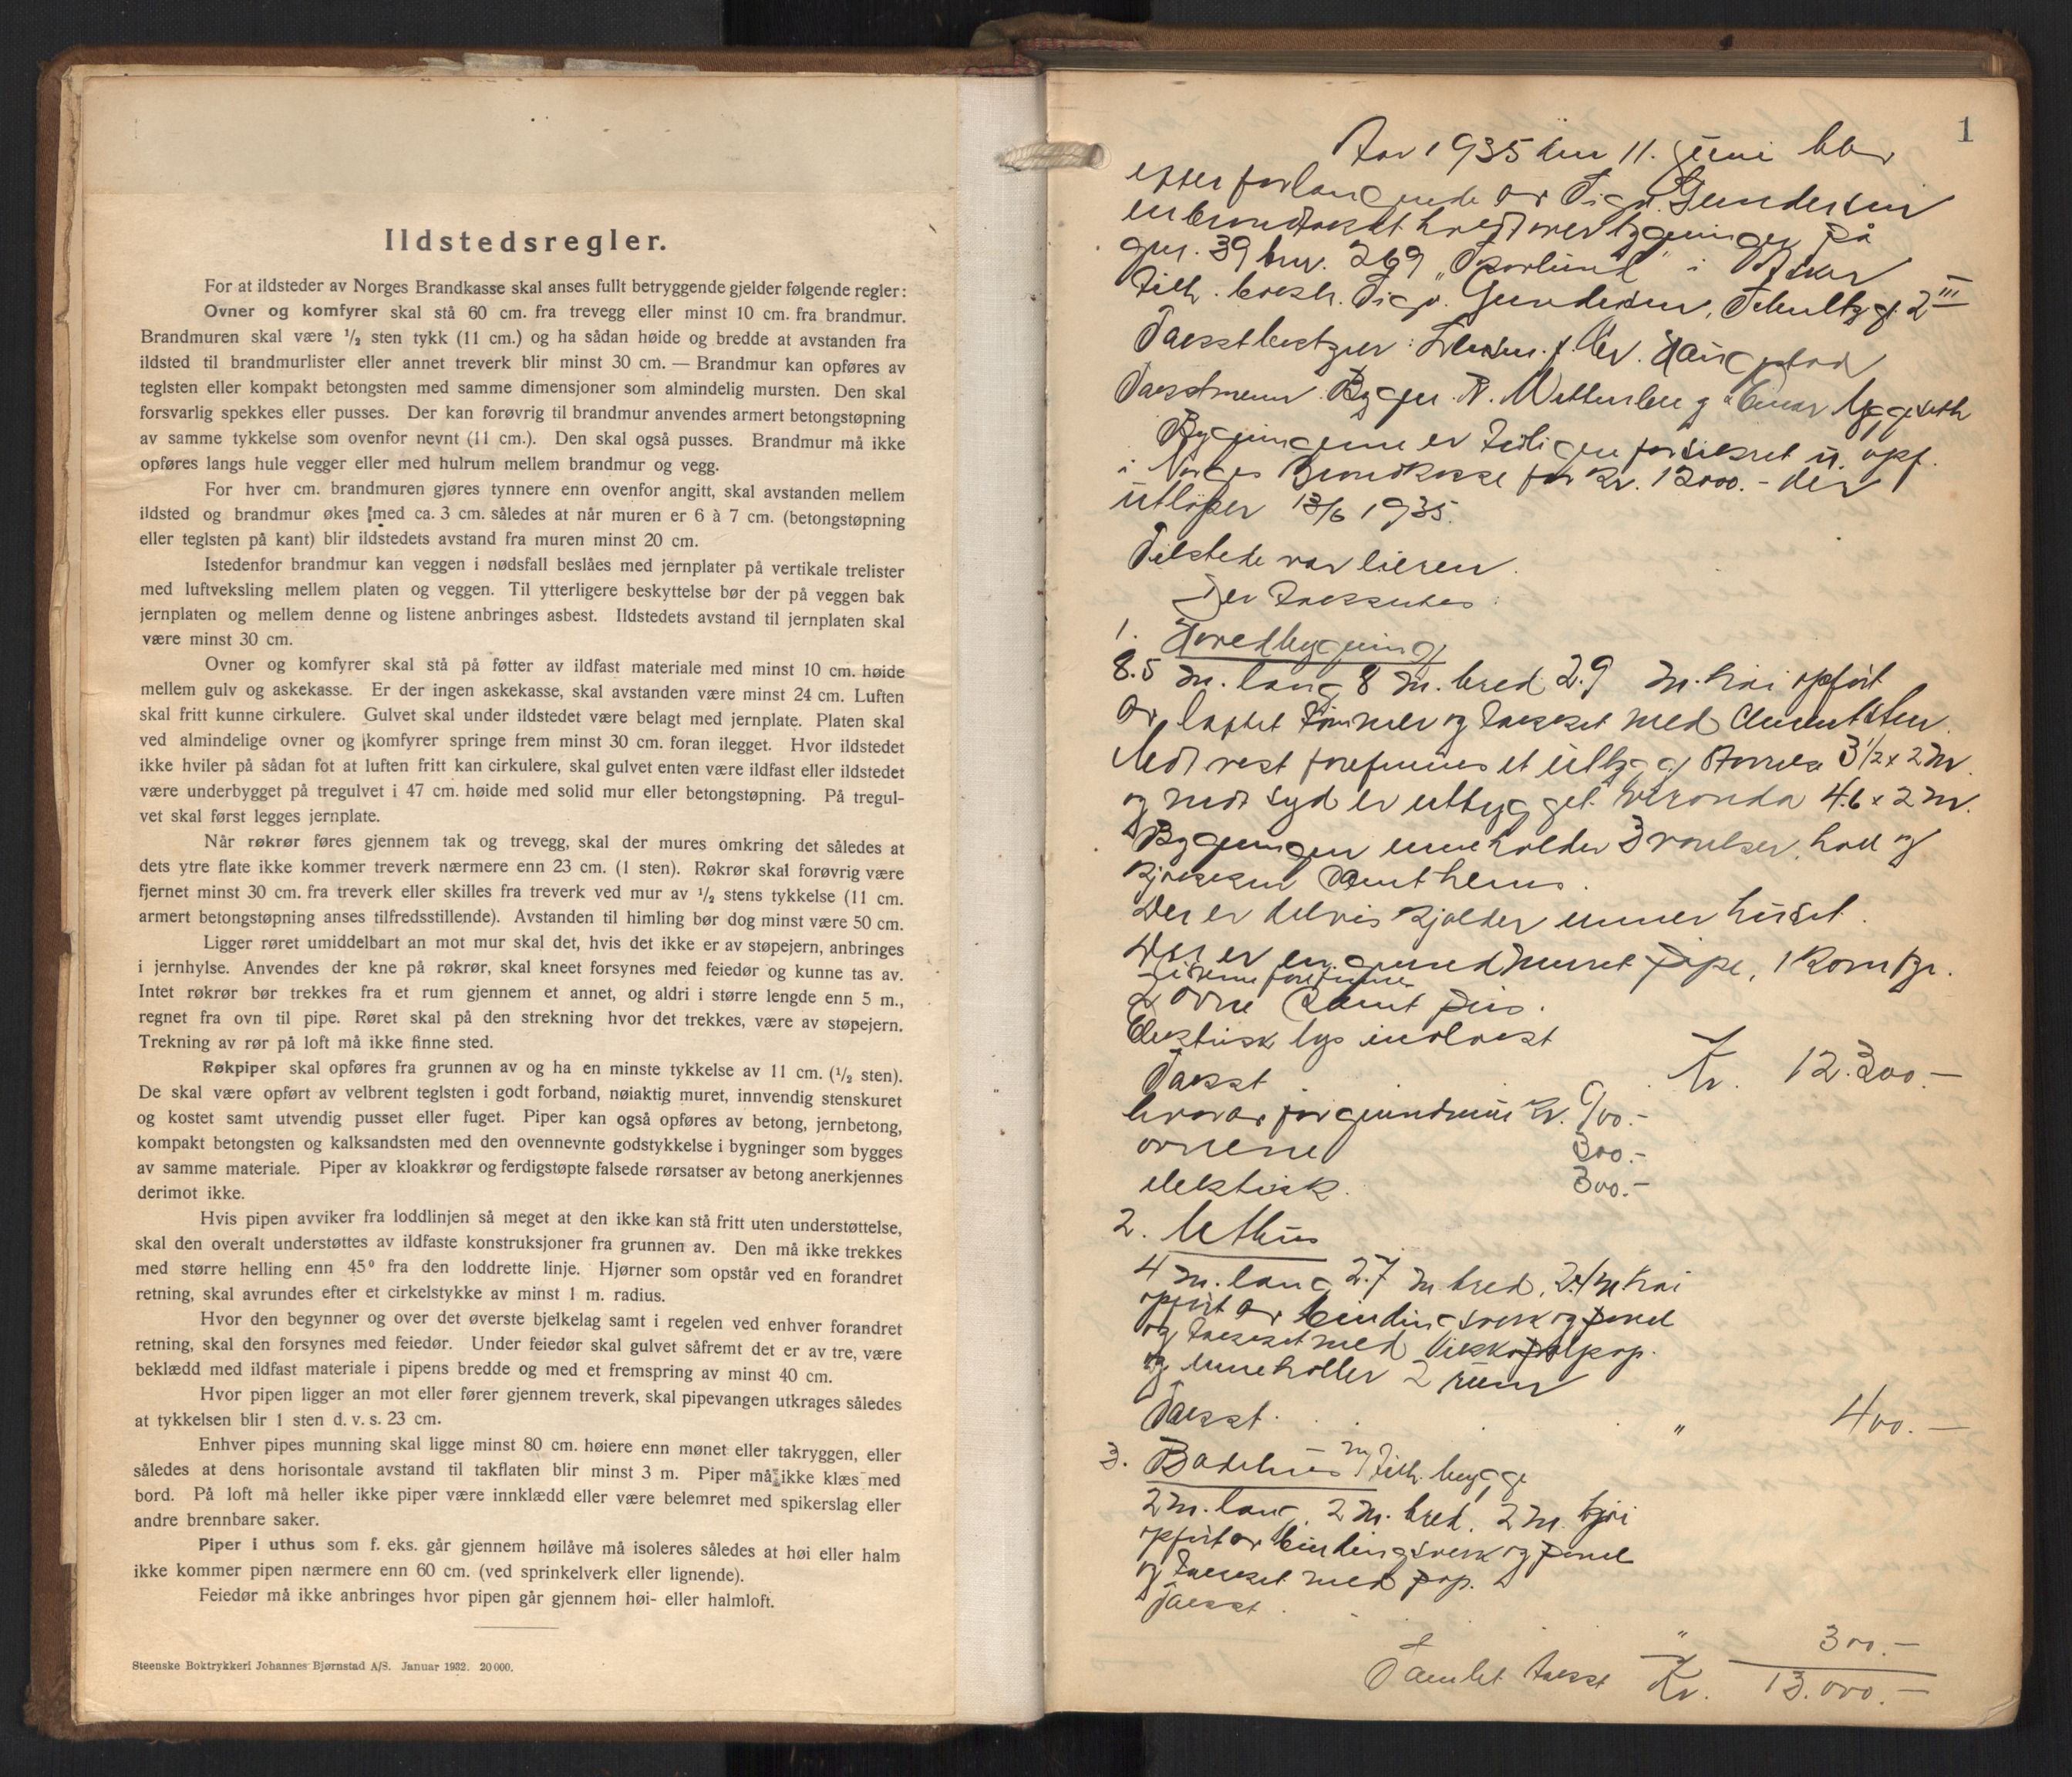 Ildstedsregler.
For at ildsteder av Norges Brandkasse skal anses fullt betryggende gjelder følgende regler:
Ovner og komfyrer skal stå 60 cm. fra trevegg eller minst 10 cm. fra brandmur.
Brandmuren skal være ½ sten tykk (11 cm.) og ha sådan høide og bredde at avstanden fra
ildsted til brandmurlister eller annet treverk blir minst 30 cm. — Brandmur kan opføres av
teglsten eller kompakt betongsten med samme dimensjoner som almindelig mursten. Den skal
forsvarlig spekkes eller pusses. Der kan forøvrig til brandmur anvendes armert betongstøpning
av samme tykkelse som ovenfor nevnt (11 cm.). Den skal også pusses. Brandmur må ikke
opføres langs hule vegger eller med hulrum mellem brandmur og vegg.
For hver cm. brandmuren gjøres tynnere enn ovenfor angitt, skal avstanden mellem
ildsted og brandmur økes med ca. 3 cm. således at når muren er 6 à 7 cm. (betongstøpning
eller teglsten på kant) blir ildstedets avstand fra muren minst 20 cm.
Istedenfor brandmur kan veggen i nødsfall beslåes med jernplater på vertikale trelister
med luftveksling mellem platen og veggen. Til ytterligere beskyttelse bør der på veggen bak
jernplaten og mellem denne og listene anbringes asbest. Ildstedets avstand til jernplaten skal
være minst 30 cm.
Ovner og komfyrer skal stå på føtter av ildfast materiale med minst 10 cm. høide
mellem gulv og askekasse. Er der ingen askekasse, skal avstanden være minst 24 cm. Luften
skal fritt kunne cirkulere. Gulvet skal under ildstedet være belagt med jernplate. Platen skal
ved almindelige ovner og komfyrer springe frem minst 30 cm. foran ilegget. Hvor ildstedet
ikke hviler på sådan fot at luften fritt kan cirkulere, skal gulvet enten være ildfast eller ildstedet
være underbygget på tregulvet i 47 cm. høide med solid mur eller betongstøpning. På tregul-
vet skal først legges jernplate.
Når røkrør føres gjennem tak og trevegg, skal der mures omkring det således at
dets ytre flate ikke kommer treverk nærmere enn 23 cm. (1 sten). Røkrør skal forøvrig være
fjernet minst 30 cm. fra treverk eller skilles fra treverk ved mur av ½ stens tykkelse (11 cm.
armert betongstøpning anses tilfredsstillende). Avstanden til himling bør dog minst være 50 cm.
Ligger røret umiddelbart an mot mur skal det, hvis det ikke er av støpejern, anbringes
i jernhylse. Anvendes der kne på røkrør, skal kneet forsynes med feiedør og kunne tas av.
Intet røkrør bør trekkes fra et rum gjennem et annet, og aldri i større lengde enn 5 m.,
regnet fra ovn til pipe. Røret skal på den strekning hvor det trekkes, være av støpejern.
Trekning av rør på loft må ikke finne sted.
Røkpiper skal opføres fra grunnen av og ha en minste tykkelse av 11 cm. (½ sten).
De skal være opført av velbrent teglsten i godt forband, nøiaktig muret, innvendig stenskuret
og kostet samt utvendig pusset eller fuget. Piper kan også opføres av betong, jernbetong,
kompakt betongsten og kalksandsten med den ovennevnte godstykkelse i bygninger som bygges
av samme materiale. Piper av kloakkrør og ferdigstøpte falsede rørsatser av betong anerkjennes
derimot ikke.
Hvis pipen avviker fra loddlinjen så meget at den ikke kan stå fritt uten understøttelse,
skal den overalt understøttes av ildfaste konstruksjoner fra grunnen av. Den må ikke trekkes
med større helling enn 45° fra den loddrette linje. Hjørner som opstår ved en forandret
retning, skal avrundes efter et cirkelstykke av minst 1 m. radius.
Hvor den begynner og over det øverste bjelkelag samt i regelen ved enhver forandret
retning, skal den forsynes med feiedør. Under feiedør skal gulvet såfremt det er av tre, være
beklædd med ildfast materiale i pipens bredde og med et fremspring av minst 40 cm.
Hvor pipen ligger an mot eller fører gjennem treverk, skal pipevangen utkrages således
at tykkelsen blir 1 sten d. v. s. 23 cm.
Enhver pipes munning skal ligge minst 80 cm. høiere enn mønet eller takryggen, eller
således at dens horisontale avstand til takflaten blir minst 3 m. Piper må ikke klæs med
bord. På loft må heller ikke piper være innklædd eller være belemret med spikerslag eller
andre brennbare saker.
Piper i uthus som f. eks. går gjennem høilåve må isoleres således at høi eller halm
ikke kommer pipen nærmere enn 60 cm. (ved sprinkelverk eller lignende).
Feiedør må ikke anbringes hvor pipen går gjennem høi- eller halmloft.
Steenske Boktrykkeri Johannes Bjørnstad A/S. Januar 1932. 20 000.
1
Aar 1935 den 11. juni blev
efter forlangende av Sigv. Gundersen
en brandtakst holdt over bygninger på
gnr. 39 bnr. 269 "Skovlund" i Asker
Tilh. Sigv. Gundersen, Schultzgt. 2 III
Takstbestyrer: Lensm.f. Chr. Haugstad
Takstmenn Byggm. R. Wettenberg & Einar Yggeseth
Bygningene er tidligere forsikret u. opf.
i Norges Brandkasse for Kr. 12000.- der
utløper 13/6 1935.
Tilstede var eieren.
Der taksertes:
1. Hovedbygning
8.5 m. lang 8 m. bred 2.9 m. høi opført
av laftet tømmer og tækket med Cementsten.
Mot vest forefinnes et utbygg størrelse 3 1/2 x 2 m.
og mot syd er utbygget veranda 4.6 x 2 m.
Bygningen inneholder 3 værelser, hall og
kjøkken samt hems.
Der er delvis kjelder under huset.
Der er en grundmuret pipe, 1 komfyr.
I denne forefinnes
2 ovne samt peis.
Elektrisk lys innlakt
Takst Kr. 12.300.-
hvorav for grundmur Kr. 900.-
ovnene 300.-
elektrisk. 300.-
2. Uthus
4 m. lang 2.7 m bred, 2.4 m høi
opført av bindingsverk og panel
og tækket med pap.
og inneholder 2 rum
Takst. " 400.-
3. Badehus m/ tilh. brygge
2 m. lang, 2 m. bred. 2 m. høi
opført av bindingsverk og panel
og tækket med pap.
Takst. " 300.-
Samlet takst Kr. 13.000.-